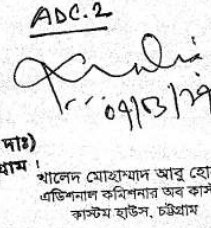 ADC.2
দাঃ)
গ্রাম।
খালেদ মোহাম্মাদ আবু হো
এডিশনাল কমিশনার অব কাস
কাস্টম হাউস, চট্টগ্রাম